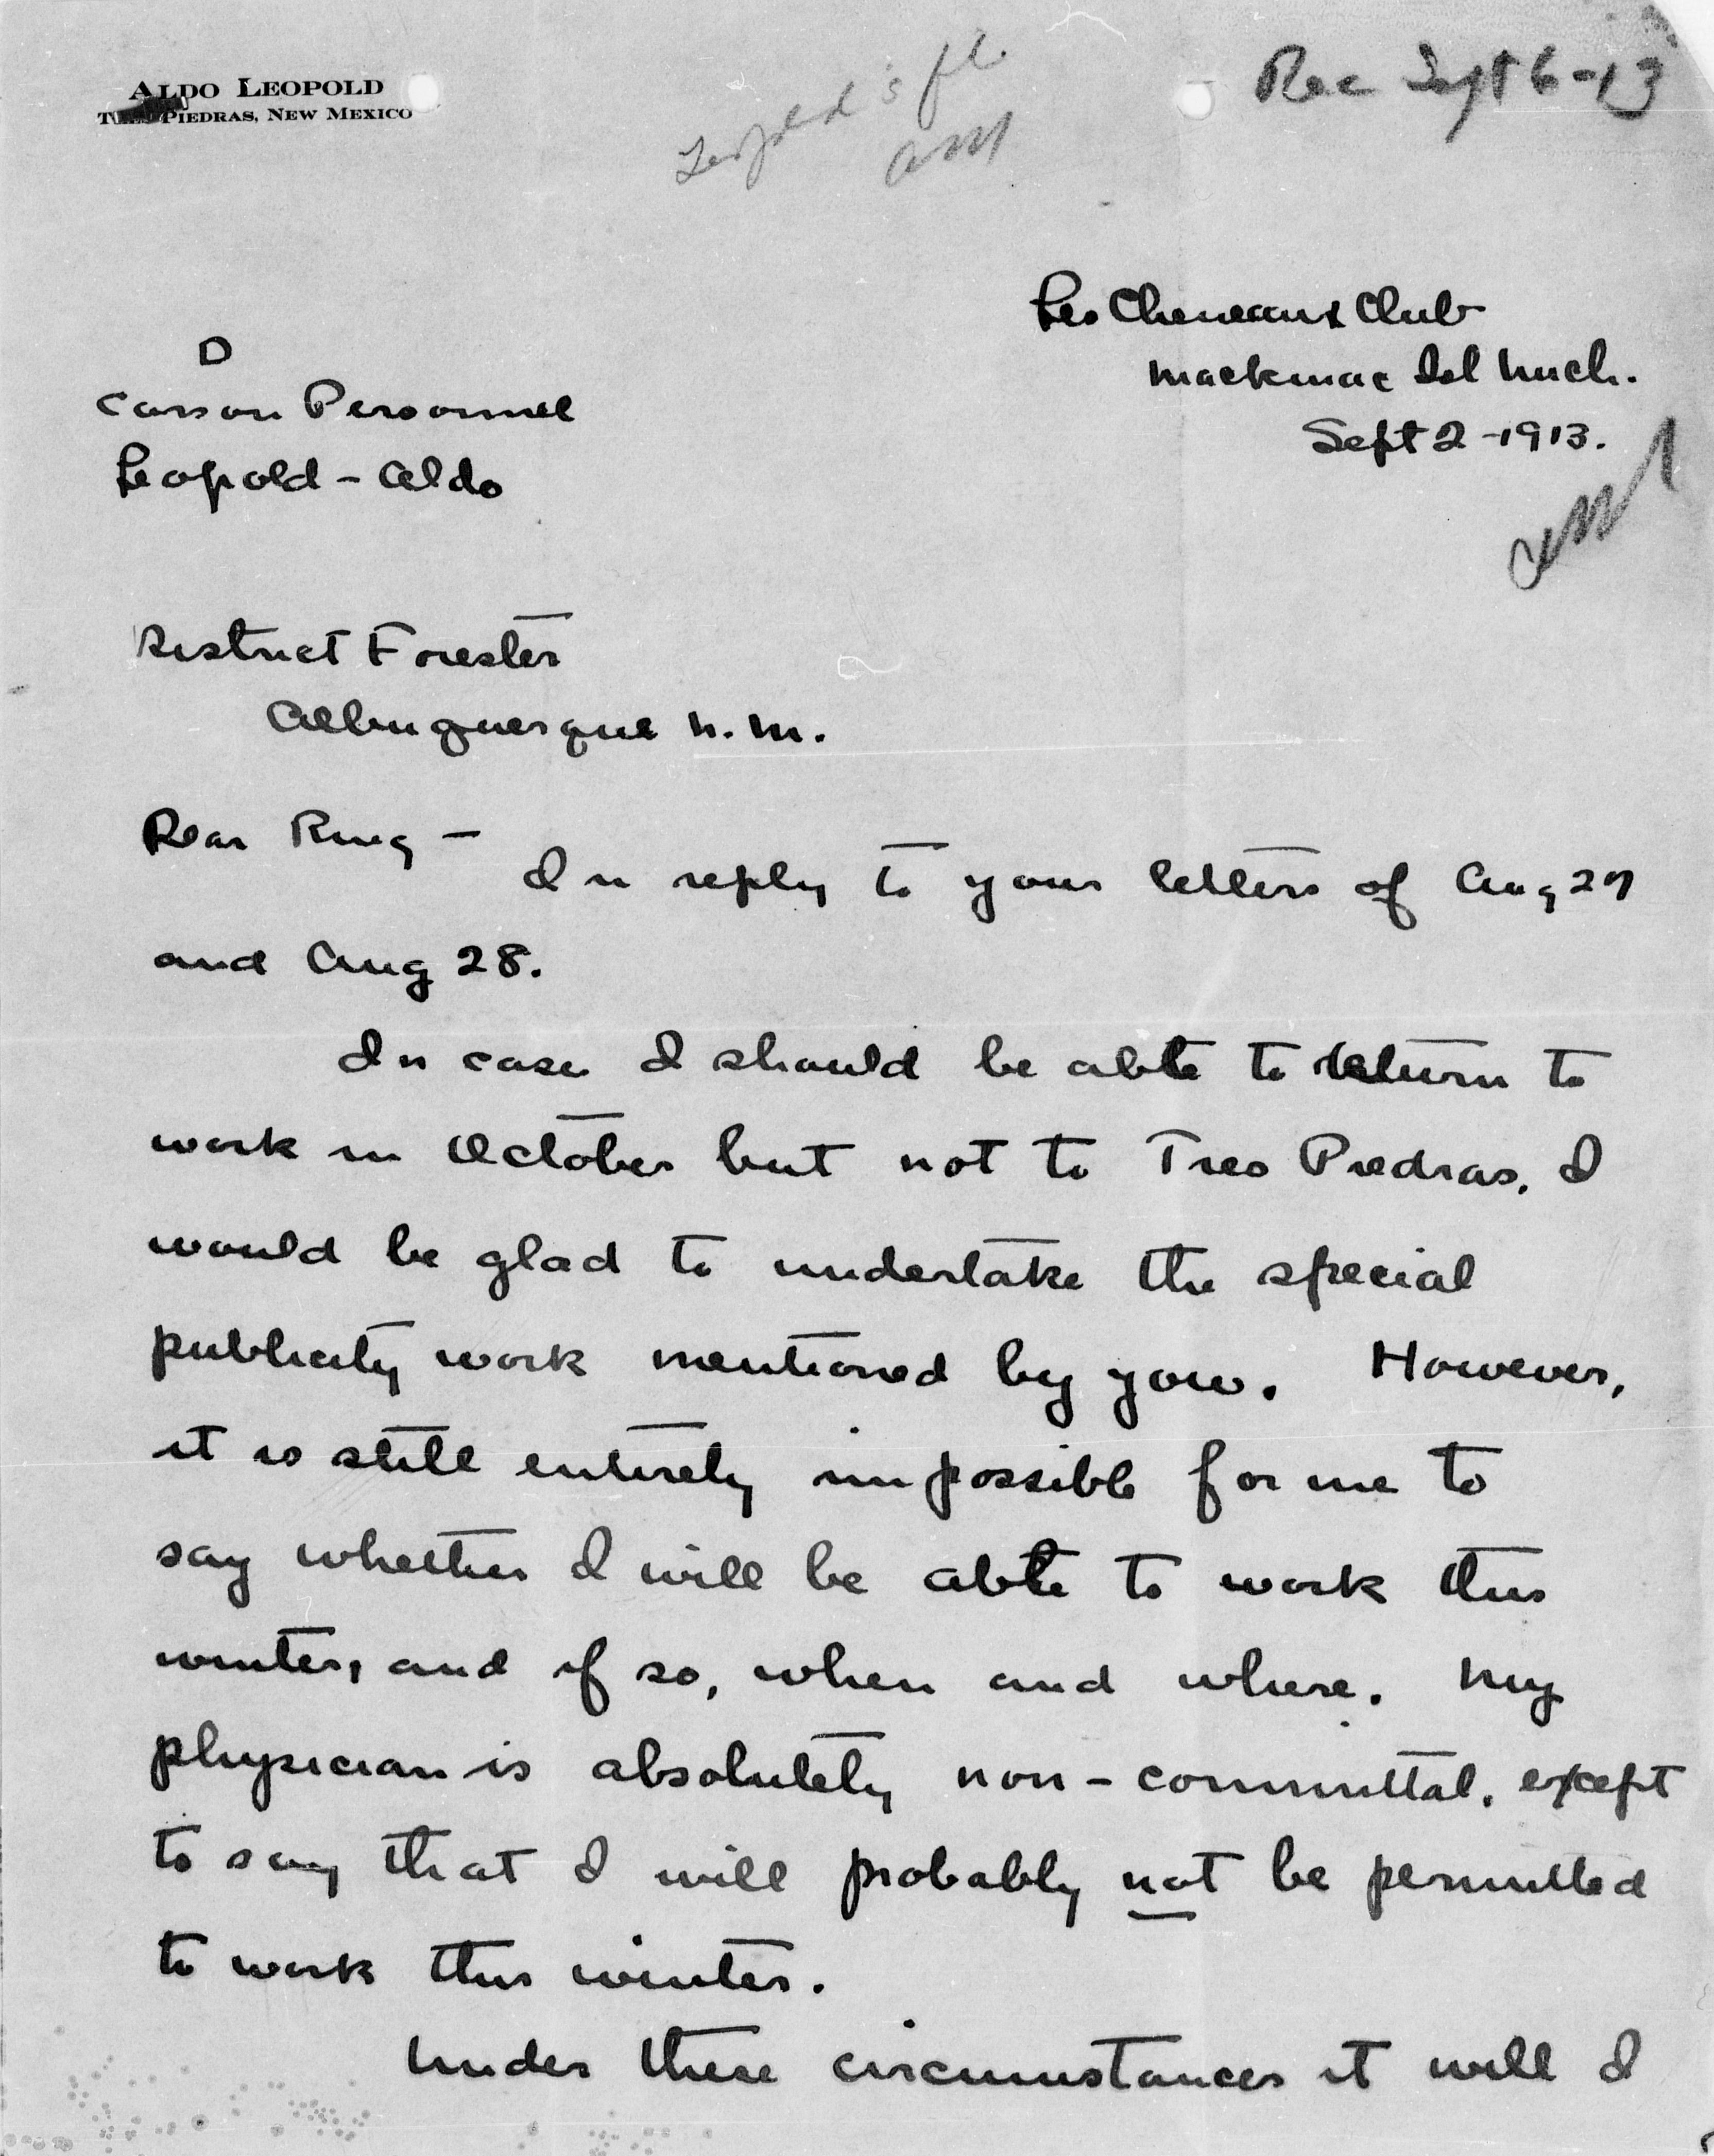 ALDO LEOPOLD
PIEDRAS, NEW MEXICO
Leopold's fl
Rec Sept 6-13
Les Cheneaux Club
Mackinac Isl Mich.
Sept 2 - 1913.
D
Carson Personnel
Leopold - Aldo
District Forester
Albuquerque N.M.
Dear Ring -
In reply to your letters of Aug 27
and Aug 28.
In case I should be able to return to
work in October but not to Tres Piedras, I
would be glad to undertake the special
publicity work mentioned by you. However,
it is still entirely impossible for me to
say whether I will be able to work this
winter, and if so, when and where. My
physician is absolutely non-committal, except
to say that I will probably not be permitted
to work this winter.
Under these circumstances it will I